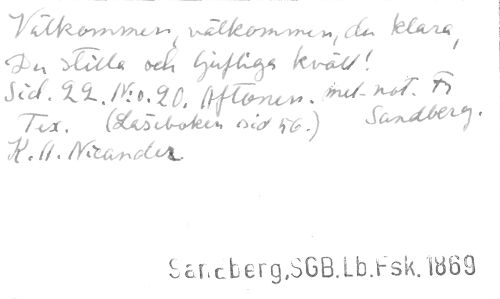 Välkommen, välkommen, du klara,
Du stilla och ljufliga kväll!
Sid. 22. N:o. 20. Aftonen. met. not. Fr
Tex. (Läseboken sid 56.) Sandberg.
K. A. Nicander
Sandberg, SGB.Lb.Fsk. 1869